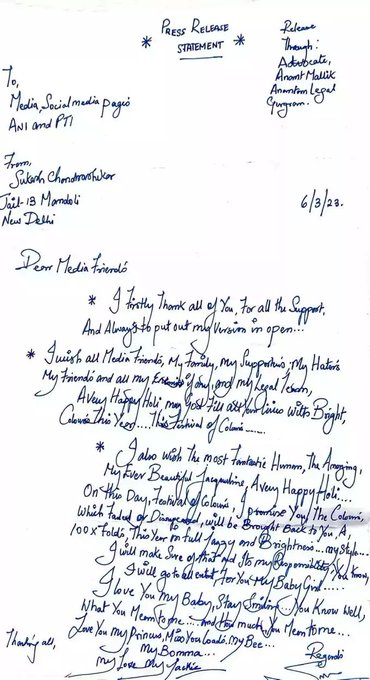 * PRESS RELEASE *
STATEMENT
Release
Through:
Advocate,
Anant Mallik
Anantam Legal
Gurgram.
To,
Media, Social media pages
ANI and PTI
From,
Sukesh Chandrashekar
Jail-13 Mandoli
New Delhi
6/3/23.
Dear Media Friends
* I Firstly Thank all of You, For all the Support,
And Always to put out my Version in open...
* I wish all Media Friends, My Family, my Supporters, My Haters
My Friends and all my any, and my Legal Team,
A very Happy Holi may God Fill all Your Lives with Bright,
Colours This Year.... This Festival of Colours......
* I also wish the most Fantastic Human, The Amazing,
My Ever Beautiful Jacqueline, A very Happy Holi...
On this Day, Festival of Colours, I promise You, The Colours,
Which Faded or Disappeared, will be Brought Back to You A
100x Folds, This Year in Full and Brightness... my Style...
I will make Sure of that and its my Responsibility, You Know,
I will go to all extent For You My Baby Girl....
I Love You My Baby, Stay Smiling... You Know Well,
What You Mean to me.... and How much You Mean to me...
Love You my Princess, Miss You Loads. My Bee...
My Bomma...
my Love My Jackie
Thanking all,
Regards